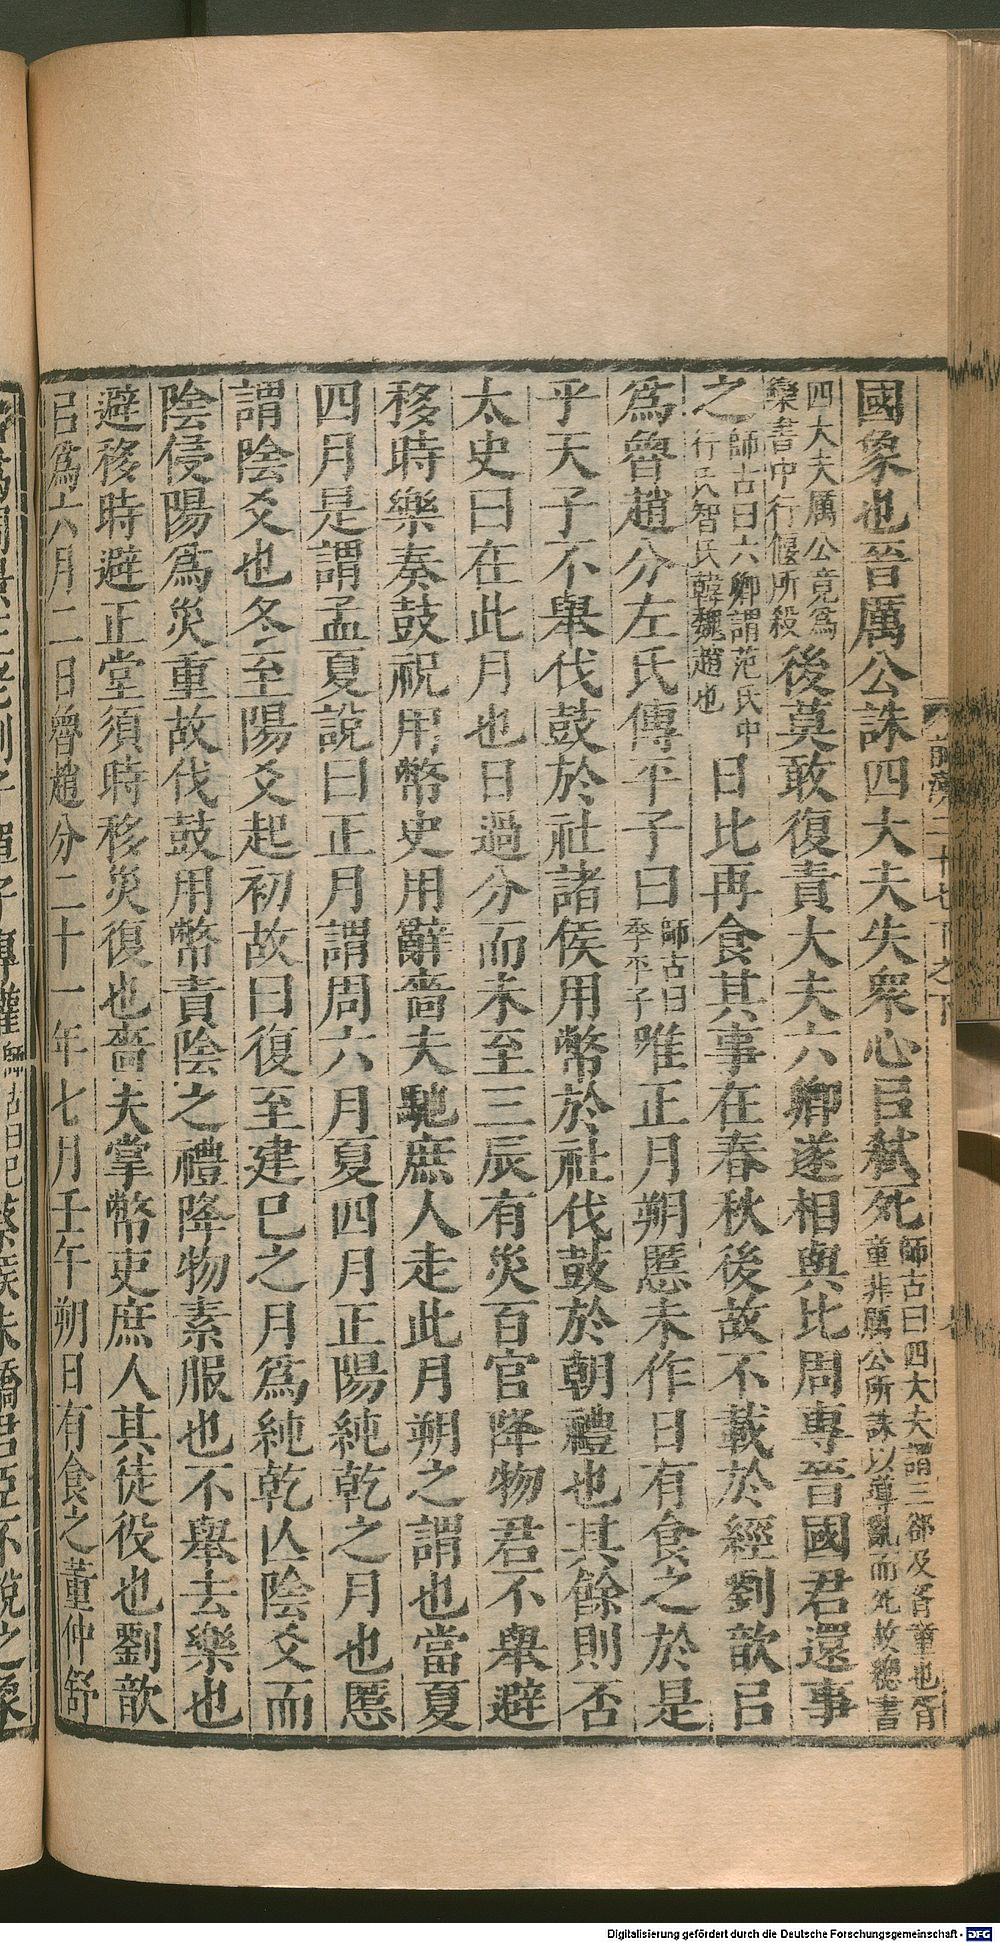 國象也晉厲公誅四大夫失衆心㠯弑死師古曰四大夫謂三郤及胥童也胥童非厲公所誅以導亂而死故緫書
四大夫厲公竟爲欒書中行偃所殺後莫敢復責大夫六卿遂相與比周專晉國君還事
之師古曰六卿謂范氏中行氏智氏韓魏趙也日比再食其事在春秋後故不載於經劉歆㠯
爲魯趙分左氏傳平子曰師古曰季平子唯正月朔慝未作日有食之於是
乎天子不舉伐鼓於社諸侯用幣於社伐鼓於朝禮也其餘則否
太史曰在此月也日過分而未至三辰有災百官降物君不舉避
移時樂奏鼓祝用幣史用辭嗇夫馳庶人走此月朔之謂也當夏
四月是謂孟夏說曰正月謂周六月夏四月正陽純乾之月也慝
謂陰爻也冬至陽爻起初故曰復至建巳之月爲純乾亾陰爻而
陰侵陽爲災重故伐鼓用幣責陰之禮降物素服也不舉去樂也
避移時避正堂須時移災復也嗇夫掌幣吏庶人其徒役也劉歆
㠯爲六月二日魯趙分二十一年七月壬午朔日有食之董仲舒
前漢二十七下之下
Digitalisierung gefördert durch die Deutsche Forschungsgemeinschaft - DFG